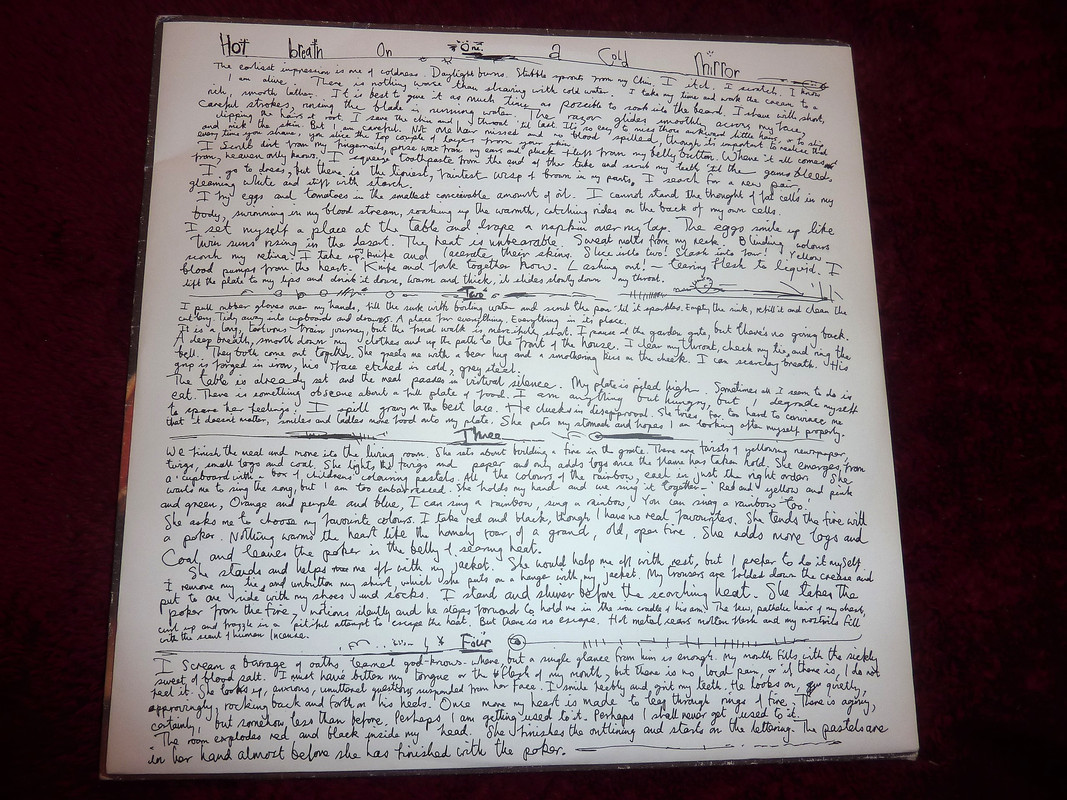 Hot breath On One. a Cold Mirror
The earliest impression is me of coldness. Daylight burns. Stubble sprouts from my chin. I itch, I scratch, I know
I am alive. There is nothing worse than shaving with cold water. I take my time and work the cream to a
rich, smooth lather. It is best to give it as much time as possible to soak into the beard. I shave with short,
careful strokes, rinsing the blade in running water. The razor glides smoothly across my face,
clipping the hairs at root. I save the chin and throat 'til last. It's so easy to miss those awkward little hairs, or to slip
and nick the skin. But I am careful. Not one hair missed and no blood spilled, though it's important to realise that
every time you shave, you slice the top couple of layers from your skin.
I scrub dirt from my fingernails, prise wax from my ears and pluck fluff from my belly button. Where it all comes
from, heaven only knows. I squeeze toothpaste from the end of the tube and scrub my teeth 'til the gums bleed.
I go to dress, but there is the tiniest, faintest wisp of brown in my pants. I search for a new pair,
gleaming white and stiff with starch.
I fry eggs and tomatoes in the smallest conceivable amount of oil. I cannot stand the thought of fat cells in my
body, swimming in my blood stream, soaking up the warmth, catching rides on the back of my own cells.
I set myself a place at the table and drape a napkin over my lap. The eggs smile up like
twin suns rising in the desert. The heat is unbearable. Sweat melts from my neck. Blinding colours
scorch my retina. I take up knife and lacerate their skins. Slice into two! Slash into four! Yellow
blood pumps from the heart. Knife and fork together now. Lashing out! - tearing flesh to liquid. I
lift the plate to my lips and drink it down, warm and thick, it slides slowly down my throat.
Two
I pull rubber gloves over my hands, fill the sink with boiling water and scrub the pan 'til it sparkles. Empty the sink, refill it and clean the
cutlery. Tidy away into cupboards and drawers. A place for everything. Everything in its place.
It is a long, tortuous train journey, but the final walk is mercifully short. I pause at the garden gate, but there's no going back.
A deep breath, smooth down my clothes and up the path to the front of the house. I clear my throat, check my tie, and ring the
bell. They both come out together. She greets me with a bear hug and a smothering kiss on the cheek. I can scarcely breath. His
grip is forged in iron, his face etched in cold, grey steel.
The table is already set and the meal passes in virtual silence. My plate is piled high. Sometimes all I seem to do is
eat. There is something obscene about a full plate of food. I am anything but hungry, but I degrade myself
to spare her feelings. I spill gravy on the best lace. He clucks in disapproval. She tries far too hard to convince me
that it doesn't matter, smiles and ladles more food onto my plate. She pats my stomach and hopes I am looking after myself properly.
Three
We finish the meal and move into the living room. She sets about building a fire in the grate. There are twists of yellowing newspaper,
twigs, small logs and coal. She lights the twigs and paper and only adds logs once the flame has taken hold. She emerges from
a cupboard with a box of childrens' colouring pastels. All the colours of the rainbow, each in just the right order. She
wants me to sing the song, but I am too embarrassed. She holds my hand and we sing it together - 'Red and yellow and pink
and green, Orange and purple and blue, I can sing a rainbow, sing a rainbow, You can sing a rainbow too.'
She asks me to choose my favourite colours. I take red and black, though I have no real favourites. She tends the fire with
a poker. Nothing warms the heart like the homely roar of a grand, old, open fire. She adds more logs and
coal and leaves the poker in the belly of searing heat.
She stands and helps me off with my jacket. She would help me off with rest, but I prefer to do it myself.
I remove my tie, and unbutton my shirt, which she puts on a hanger with my jacket. My trousers are folded down the crease and
put to one side with my shoes and socks. I stand and shiver before the scorching heat. She takes the
poker from the fire, motions silently and he steps forward to hold me in the iron cradle of his arms. The few, pathetic hairs of my chest,
curl up and frazzle in a pitiful attempt to escape the heat. But there is no escape. Hot metal sears molten flesh and my nostrils fill
with the scent of human incense.
Four
I scream a barrage of oaths learned god-knows-where, but a single glance from him is enough. My mouth fills with the sickly
sweet of blood salt. I must have bitten my tongue or the flesh of my mouth, but there is no local pain, or if there is, I do not
feel it. She looks up, anxious, unuttered questions suspended from her face. I smile feebly and grit my teeth. He looks on, quietly,
approvingly, rocking back and forth on his heels. Once more my heart is made to leap through rings of fire. There is agony,
certainly, but somehow less than before. Perhaps, I am getting used to it. Perhaps I shall never get used to it.
The room explodes red and black inside my head. She finishes the outlining and starts on the lettering. The pastels are
in her hand almost before she has finished with the poker.